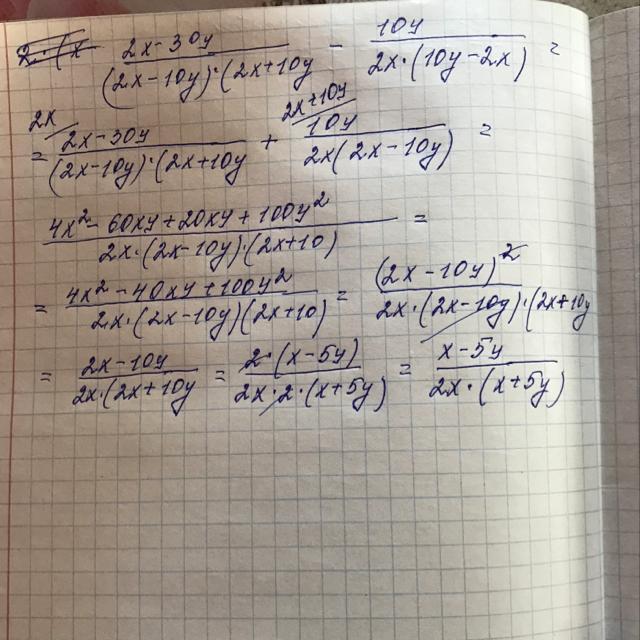 2·(x (2x-30y)/((2x-10y)·(2x+10y) - 10y/(2x·(10y-2x)) =
= 2x/ (2x-30y)/((2x-10y)·(2x+10y) + 2x+10y/ 10y/(2x(2x-10y)) =
(4x²-60xy+20xy+100y²)/(2x·(2x-10y)·(2x+10)) =
= (4x²-40xy+100y²)/(2x·(2x-10y)(2x+10)) = (2x-10y)²/(2x·(2x-10y)·(2x+10y
= (2x-10y)/(2x·(2x+10y = (2·(x-5y))/(2x·2·(x+5y)) = (x-5y)/(2x·(x+5y))